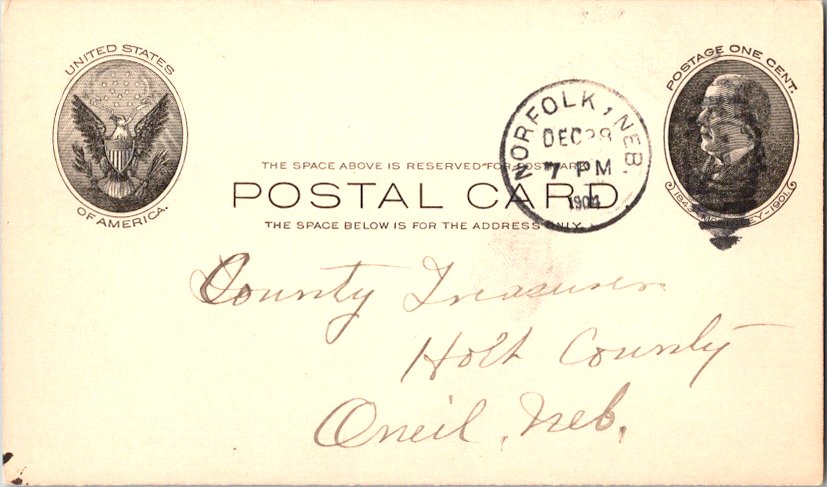 UNITED STATES
OF AMERICA.
POSTAGE ONE CENT.
1843-McKINLEY-1901.
NORFOLK, NEB.
DEC 28
7 PM
1904
THE SPACE ABOVE IS RESERVED FOR POSTMARK.
POSTAL CARD
THE SPACE BELOW IS FOR THE ADDRESS ONLY.
County Treasurer
Holt County
Oneil, Neb.